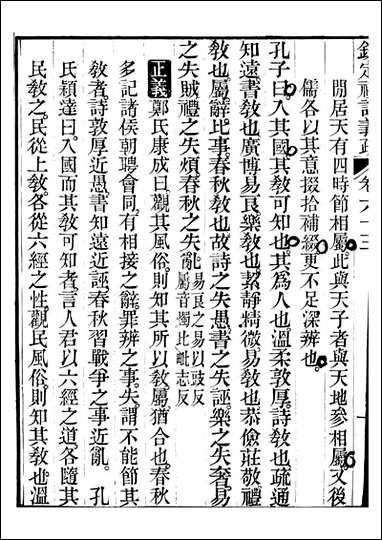 欽定禮記義疏 卷六十三
閒居天有四時節相屬此與天子者與天地參相屬文後
儒各以其意掇拾補綴更不足深辨也
孔子曰入其國其教可知也其為人也溫柔敦厚詩教也疏通
知遠書教也廣博易良樂教也絜靜精微易教也恭儉莊敬禮
教也屬辭比事春秋教也故詩之失愚書之失誣樂之失奢易
之失賊禮之失煩春秋之失亂易良之易以豉反屬音燭比毗志反
正義鄭氏康成曰觀其風俗則知其所以教屬猶合也春秋
多記諸侯朝聘會同有相接之辭罪辨之事失謂不能節其
教者詩敦厚近愚書知遠近誣春秋習戰爭之事近亂 孔
氏穎達曰入國而其教可知者言人君以六經之道各隨其
民教之民從上教各從六經之性觀民風俗則知其教也溫